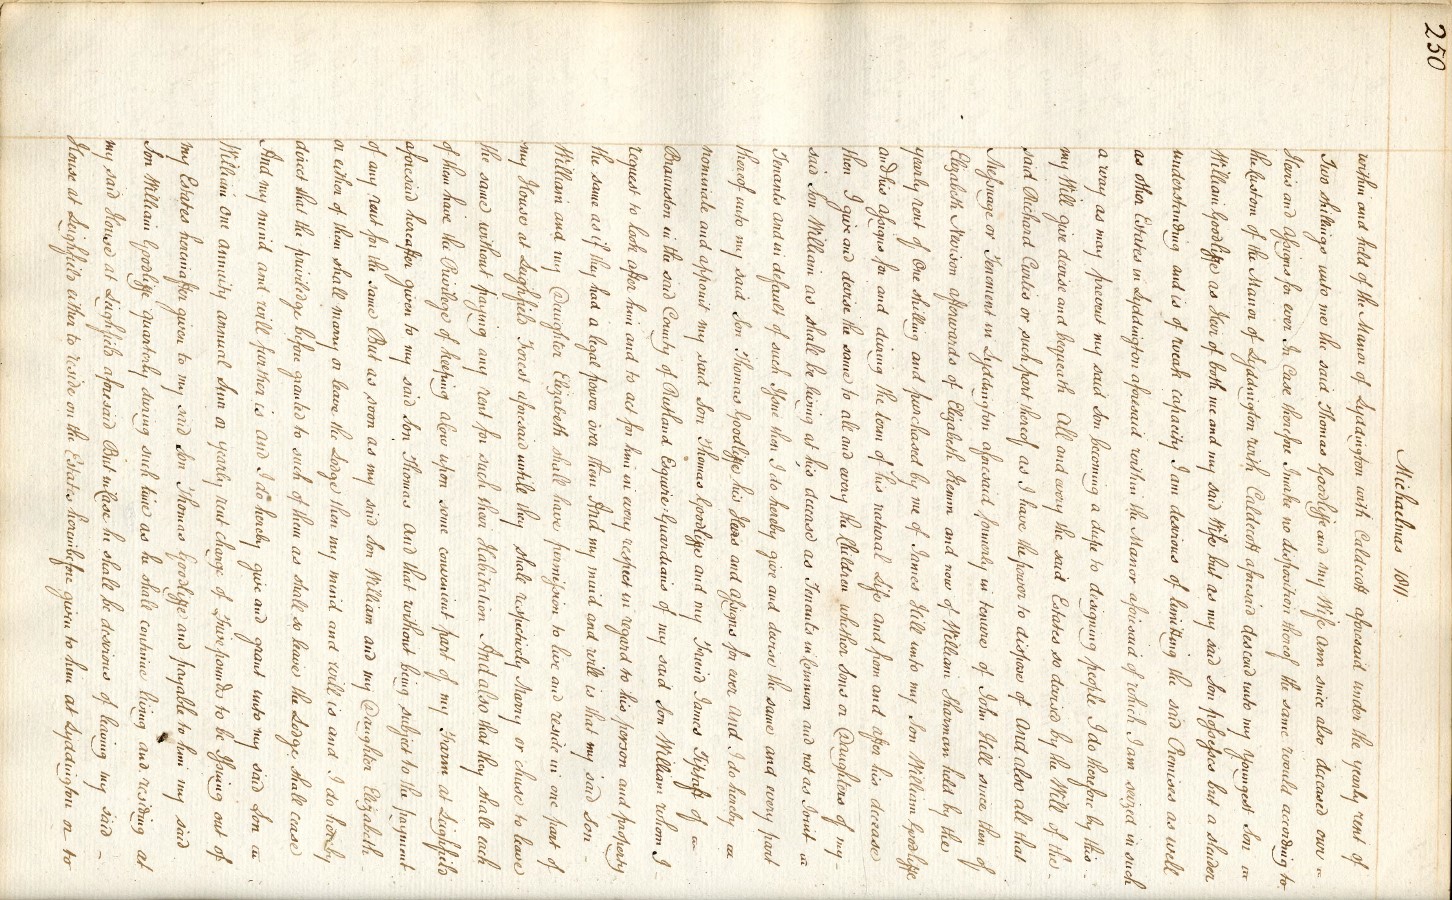 250
Michalmas 1811.
within and held of the Manor of Lyddington with Caldecott aforesaid under the yearly rent of
Two shillings unto me the said Thomas Goodliffe and my Wife Ann since also deceased our
Heirs and Assigns for ever In Case therefore I make no disposition thereof the same would according to
the Custom of the Manor of Lyddington with Caldecott aforesaid descend unto my youngest Son
William Goodliffe as Heir of both me and my said Wife but as my said Son possesses but a slender
understanding and is of weak capacity I am desirous of limiting the said Premises as well
as other Estates in Lyddington aforesaid within the Manor aforesaid of which I am seized in such
a way as may prevent my said Son becoming a dupe to designing people I do therefore by this
my Will give devise and bequeath All and every the said Estates so devised by the Will of the
said Richard Curtis or such part thereof as I have the power to dispose of And also all that
Messuage or Tenement in Lyddington aforesaid formerly in tenure of John Hill since then of
Elizabeth Newison afterwards of Elizabeth and now of William Sharman held by the
yearly rent of One shilling and purchased by me of James Hill unto my Son William Goodliffe
and his Assigns for and during the term of his natural Life and from and after his decease
then I give and devise the same to all and every the Children whether Sons or Daughters of my
said Son William as shall be living at his decease as Tenants in Common and not as Joint
Tenants and in default of such Issue then I do hereby give and devise the same and every part
thereof unto my said Son Thomas Goodliffe his Heirs and Assigns for ever And I do hereby
nominate and appoint my said Son Thomas Goodliffe and my Friend James Tiptaft of
Braunston in the said County of Rutland Esquire Guardians of my said Son William whom I
request to look after him and to act for him in every respect in regard to his person and property
the same as if they had a legal power over them And my mind and will is that my said Son
William and my Daughter Elizabeth shall have permission to live and reside in one part of
my House at Leighfield Forest aforesaid untill they shall respectively Marry or chuse to leave
the same without paying any rent for such their Habitation And also that they shall each
of them have the Privilege of keeping a Cow upon some convenient part of my Farm at Leighfield
aforesaid hereafter given to my said Son Thomas And that without being subject to the payment
of any rent for the same But as soon as my said Son William and my Daughter Elizabeth
or either of them shall marry or leave the Lodge then my mind and will is and I do hereby
direct that the priviledge before granted to such of them as shall so leave the Lodge shall cease
And my mind and will further is and I do hereby give and grant unto my said Son
William One Annuity annual Sum or yearly rent charge of pounds to be Issuing out of
my Estates hereinafter given to my said Son Thomas Goodliffe and payable to him my said
Son William Goodliffe quarterly during such time as he shall continue living and residing at
my said House at Leighfield aforesaid But in Case he shall be desirous of leaving my said
House at Leighfield either to reside on the Estates hereinbefore given to him at Lyddington or to